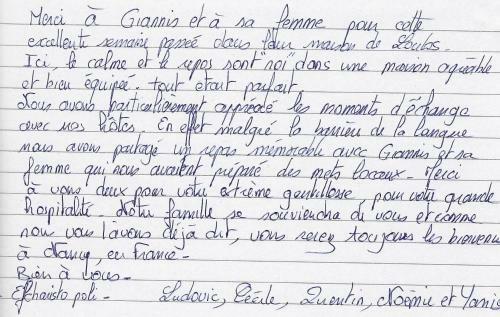 Merci à Giannis et à sa femme pour cette
excellente semaine passée dans "leur maison de Loutas.
Ici, le calme et le repos sont "roi" dans une maison agréable
et bien équipée. tout était parfait.
Nous avons particulièrement apprécié les moments d'échange
avec nos hôtes. En effet malgré la barrière de la langue
nous avons partagé un repas mémorable avec Giannis et sa
femme qui nous avaient préparé des mets locaux. Merci
à vous deux pour votre extrème gentillesse, pour votre grande
hospitalité. Notre famille se souviendra de vous et comme
nous vous l'avons déjà dit, vous serez toujours les bienvenus
à Nancy, en France.
Bien à vous.
Efcharisto poli. Ludovic, Cécile, Quentin, Noémie et Yanis